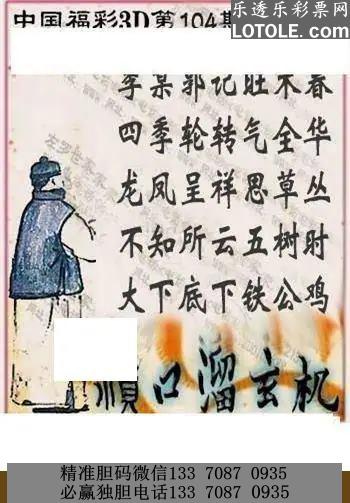 中国福彩3D第104期
乐透乐彩票网
LOTOLE.COM
四季轮转气全华
龙凤呈祥思草丛
不知所云五树时
大下底下铁公鸡
顺口溜玄机
精准胆码微信133 7087 0935
必赢独胆电话133 7087 0935